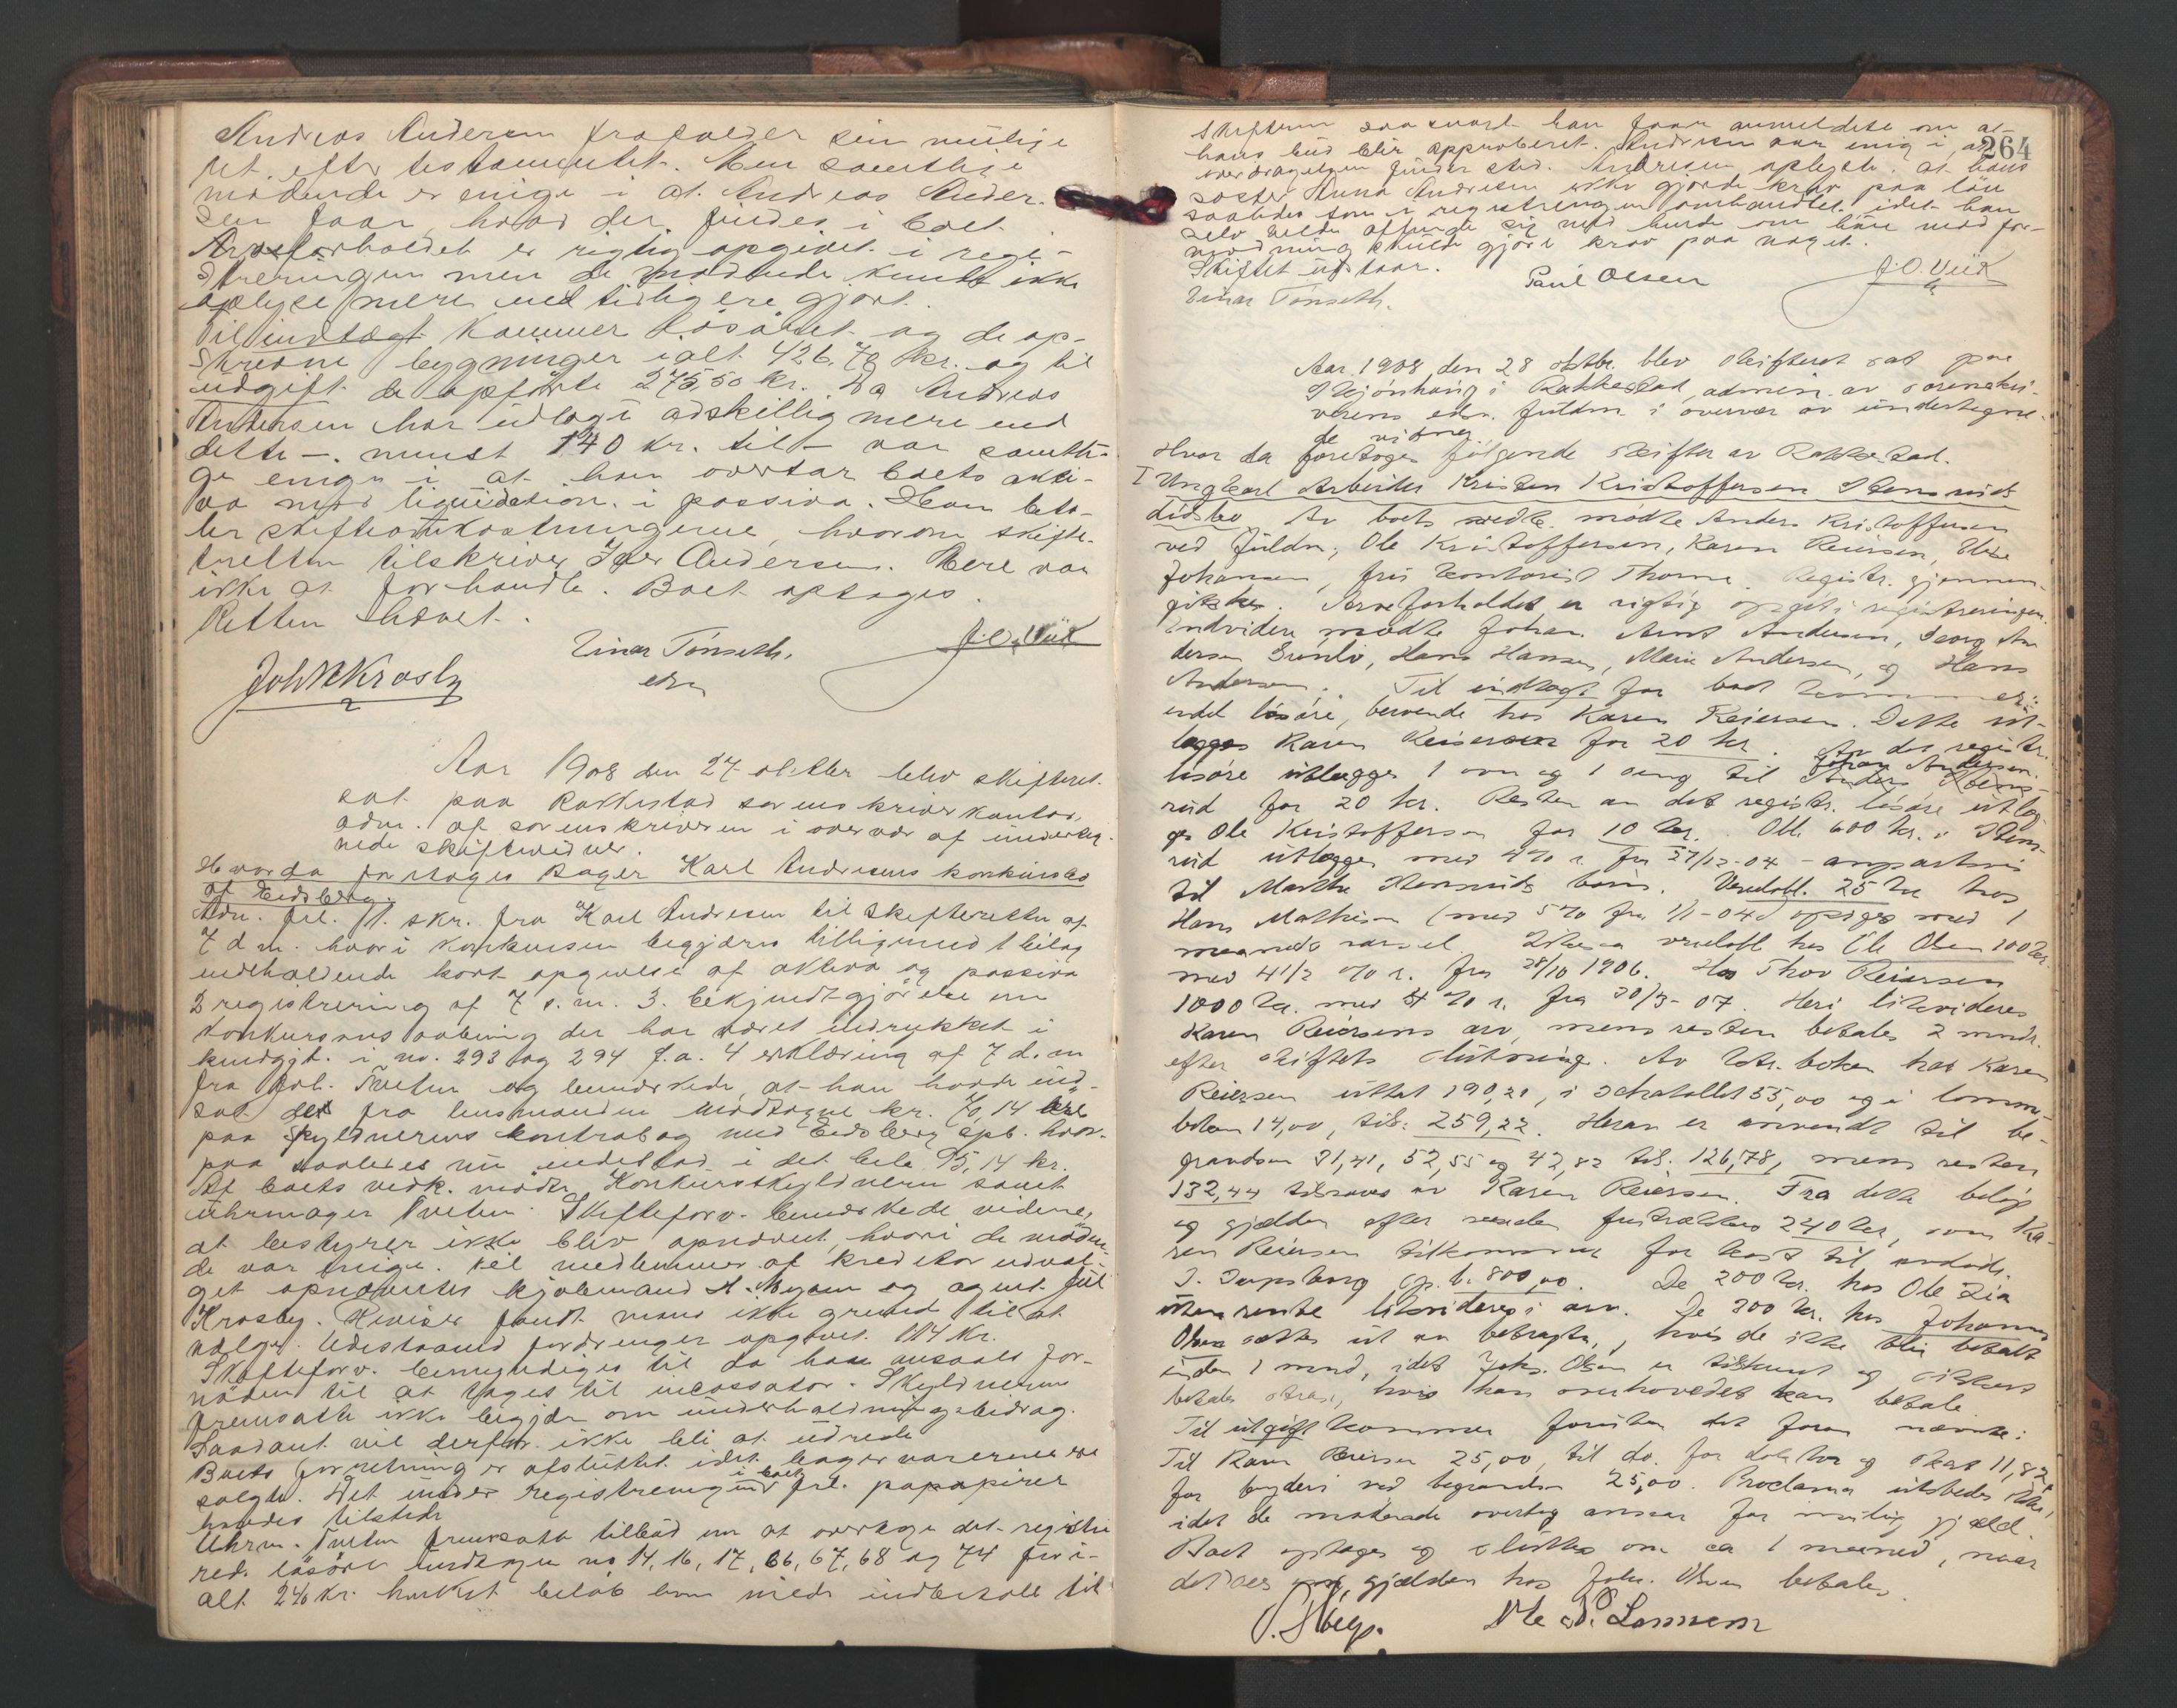 Andreas Andersen frafalder sin mulige
ret efter testamentet. Men samtlige
mødende er enige i at Andreas Ander-
sen faar hvad der findes i boet.
Arveforholdet er rigtig opgivet i regi-
streringen men de mødende kunde ikke
oplyse mere end tidligere gjort.
Til indtægt kommer løsøret og de op-
skrevne bygninger ialt 426,70 kr. og til
udgift de opførte 275,50 kr. Da Andreas
Andersen har udlagt adskillig mere end
dette – mindst 140 kr. til – var samtli-
ge enige i at han overtar boets akti-
va mod liquidation i passiva. Han beta-
ler skifteomkostningerne, hvorom skifte-
retten tilskriver Iver Andersen. Mere var
ikke at forhandle. Boet optages.
Retten hævet.
Einar Tønseth. J.O. Viik
edsv
Joh N Krosby
Aar 1908 den 27 oktober blev skifteret
sat paa Rakkestad sorenskriverkontor,
adm. af sorenskriveren i overvær af underteg-
nede skiftevidner.
Hvorda foretoges Bager Karl Andresens konkursbo
af Eidsberg.
Adm. frl. 1. skr. fra Karl Andresen til skifteretten af
7 d m. hvori konkursen begjæres tilligemed 1 bilag
indholdende kort opgivelse af aktiva og passiva
2 registrering af 7 s. m. 3. bekjendtgjørelse om
konkursens aabning der har været indrykket i
kundgjt. i no. 293 og 294 f. a. 4 erklæring af 7 d. m
fra Joh. Tveten og bemærkede, at han havde ind-
sat det fra lensmanden modtagne kr. 70,14
paa skyldnerens kontrabog med Eidsberg spb. hvor-
paa saaledes nu indestod i det hele 95,14 kr.
Af boets vedk. mødte Konkursskyldneren samt
uhrmager Tveten. Skifteforv. bemærkede videre,
at bestyrer ikke blev opnævnt, hvori de møden-
de var enige. Til medlemmer af kreditorudval-
get opnævntes kjøbmand A. Mysen og agent Jul
Krosby. Revisor fandt man ikke grund til at
vælge. Udestaaend fordringer opgivet 114 kr.
Skifteforv. bemyndiges til da han ansaaes for-
nøden til at tages til incassator. Skyldneren
fremsatte ikke begjær om underholdningsbidrag.
Saadant vil derfor ikke bli at udrede
Boets forretning er afsluttet idet bagervarerne er
solgte. Det under registreringen i boet frl. papapirer
havdes tilstede
Uhrm. Tveten fremsatte tilbud om at overtage det registre
rede løsøre undtagen no 14, 16, 17, 66, 67, 68 og 74 for i-
alt 240 kr. hvilket beløb han vilde indbetale til
264
Skifteren saa snart han faar anmeldelse om at
hans bud blir approberet. Andresen var enig i, at
overdragelsen finder sted. Andresen oplyste at hans
søster Anna Andresen ikke gjorde krav paa løn
saaledes som i registreringen omhandlet idet han
selv vilde affinde sig med hende om hun mod for-
modning skulde gjøre krav paa noget.
Skiftet udstaar.
Einar Tønseth. Paul Olsen J.O. Viik
Aar 1908 den 28 oktbr. blev skifteret sat paa
Skjønhaug i Rakkestad, admin. av sorenskri-
verens edsv. fuldm. i overvær av undertegne-
de vidner
Hvor da foretoges følgende skifter av Rakkestad.
I Ungkarl Arbeider Kristen Kristoffersen Stensruds
dødsbo. Av boets vedk. mødte Anders Kristoffersen
ved fuldm., Ole Kristoffersen, Karen Reiersen, Else
Johansen, fris kontorist Thorne. Registr. gjennem-
gikkes. Arveforholdet er rigtig opgit i registreringen.
Endvidere mødte Johan Arnt Andersen, Georg An
dersen Grønli, Hans Hansen, Marie Andersen, og Hans
Andersen. Til indtægt for boet kommer:
endel løsøre, beroende hos Karen Reiersen. Dette ut-
lægges Karen Reiersen for 20 kr. Av det registr.
løsøre utlægges 1 ovn og 1 seng til Johan Andersen
rud for 20 kr. Resten av det registr. løsøre utlæg
ges Ole Kristoffersen for 10 kr. Obl. 600 kr. i Stens-
rud utlægges med 4 % r. fra 27/12-04 – anpartsvis
til Marthe Stensruds børn. Vexelobl. 25 kr hos
Hans Mathisen (med 5 % fra 1/1-04) opsiges med 1
maaneds varsel. Likesaa vexelobl. hos Ole Olsen 100 kr.
med 4 1/2 % r. fra 28/10 1906. Hos Thov Reiersen
1000 kr. med 4 % r. fra 30/3-07. Heri likvideres
Karen Reiersens arv, mens resten betales 2 mndr.
efter skiftets slutning. Av boken har Karen
Reiersen uttat 190,21, i schatollet 55,00 og i lomme-
boken 14,00, tils. 259,22. Herav er anvendt til be-
gravelsen 31,41, 52,55 og 42,82 tils. 126,78, mens resten
132,44 tilsvares av Karen Reiersen. Fra dette beløp
og gjælden efter fratrækkes 240 kr, som Ka-
ren Reiersen tilkommer for kost til avdøde.
I Sarpsborg sp. b. 800,00. De 200 kr. hos Ole Lia
uten rente likvideres i arv. De 300 kr. hos Johannes
Olsen sættes ut av betragtn., hvis de ikke blir betalt
inden 1 mnd, idet Johs. Olsen er tilskrevet og sikkert
betaler straks, hvis han overhovedet kan betale
Til utgift kommer foruten det foran nævnte:
Til Karen Reiersen 25,00, til do. for doktor og skat 11,82,
for bryderi ved begravelsen 25,00. Proclama utstedes ikke,
idet de møtende overtog ansvar for mulig gjæld.
Boet optages og sluttes om ca 1 maaned, naar
det sees om gjælden hos Joh. Olsen betales.
Ole P. Lannem